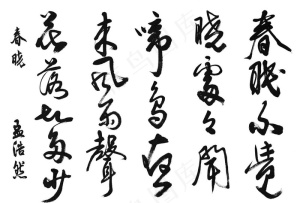 春眠不覺
曉處々聞
啼鳥夜
来風雨聲
花落知多少
春曉
孟浩然